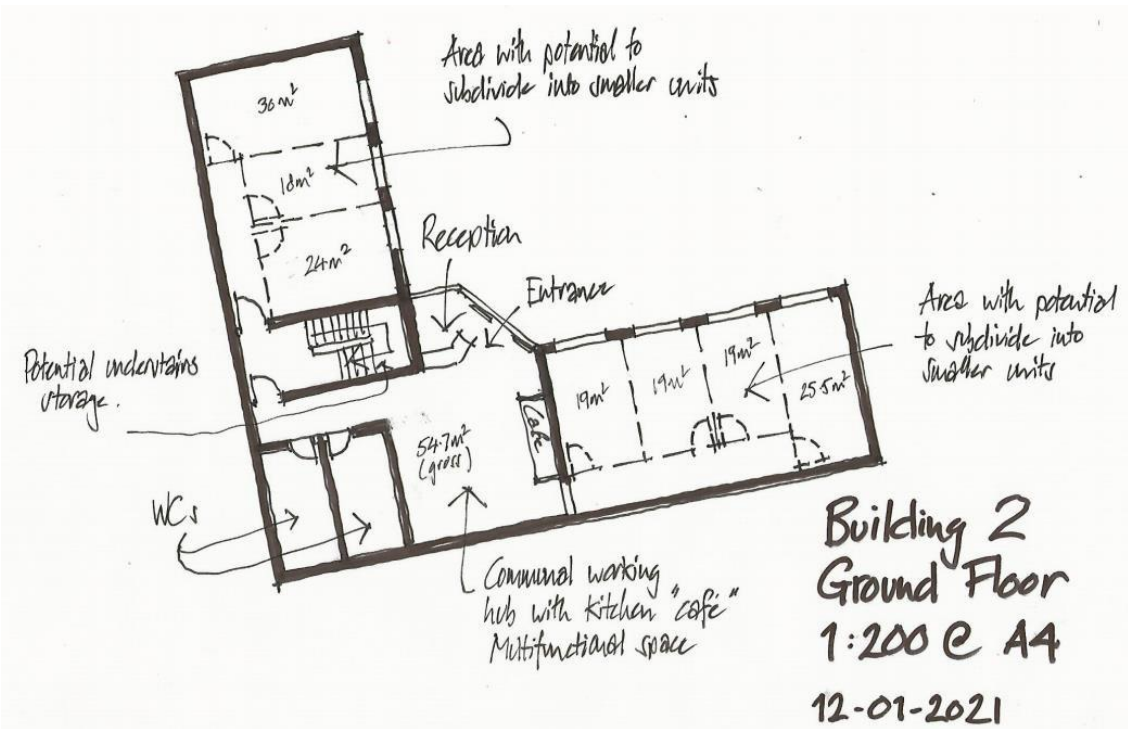 Area with potential to
subdivide into smaller units
30m²
18m²
24m²
Reception
Entrance
Area with potential
to subdivide into
smaller units
19m²
19m²
19m²
25.5m²
Potential understairs
storage.
Cafe
54.7m²
(gross)
WCs
Communal working
hub with kitchen "café"
Multifunctional space
Building 2
Ground Floor
1:200 @ A4
12-01-2021